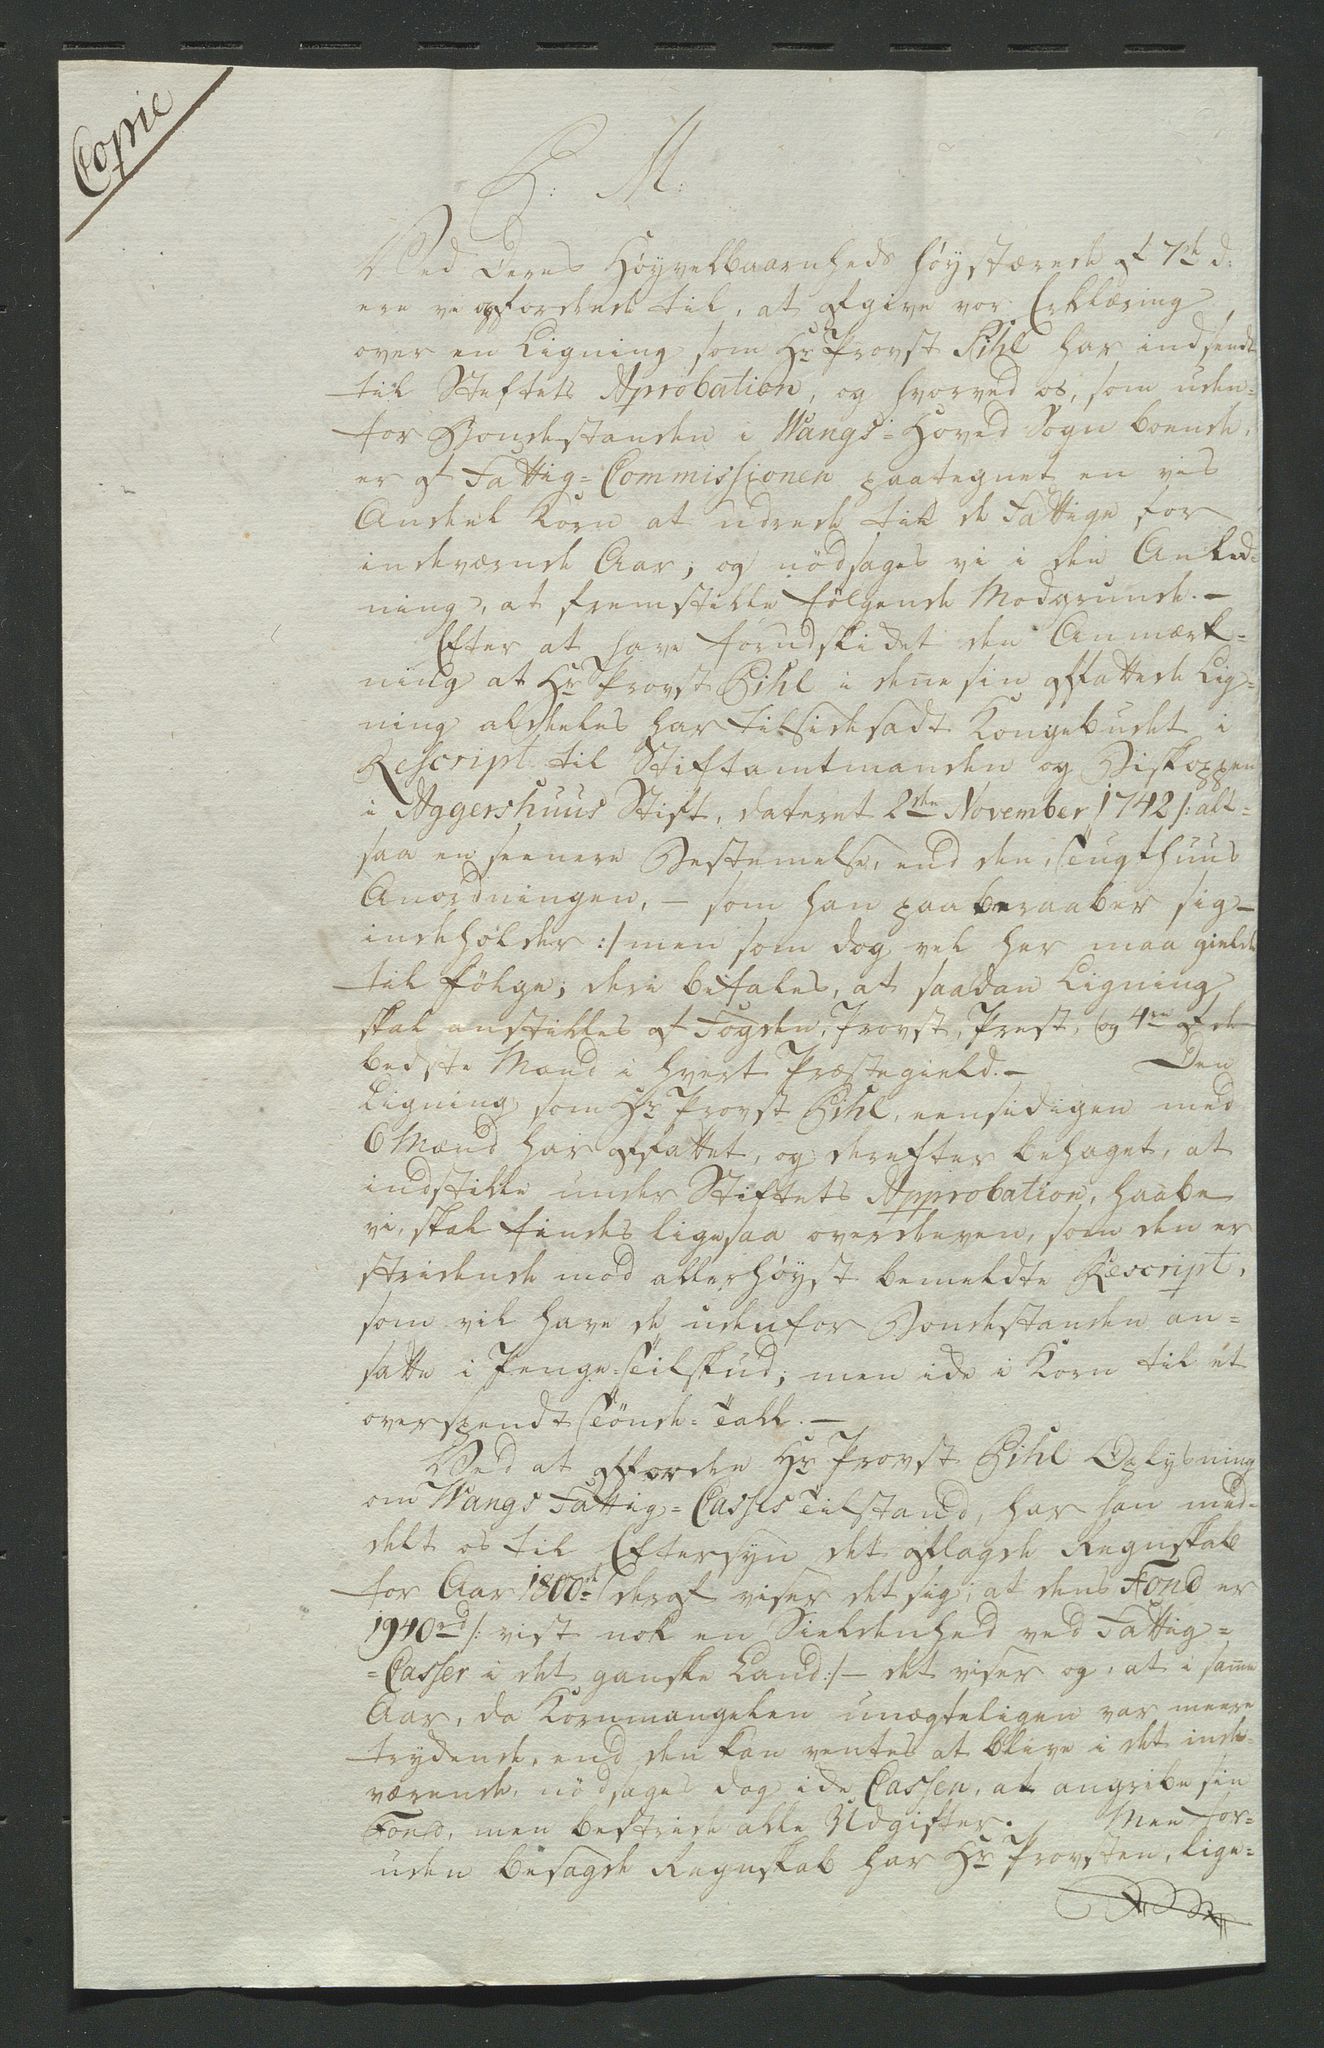 Copie
P: M:
Ved Deres Høyvelbaarnheds høystærede af 7de d:
ere vi opfordrede til, at afgive vor Erklæring
over en Ligning som Hr Provst Pihl har indsendt
til Stiftets Aprobation, og hvorved os, som uden-
for Bondestanden i Wangs-Hoved Sogn boende,
er af Fattig-Commissionen paategnet en vis
Andeel Korn at udrede til de Fattige for
indeværende Aar; og nödsages vi i den Anled-
ning, at fremstille følgende Modgrunde. —
Efter at have forudskikket den Anmærk-
ning at Hr Provst Pihl i denne sin affattede Lig-
ning aldeeles har tilsidesadt Kongebudet i
Rescript til Stiftamtmanden og Biskoppen
i Aggershuus Stift, dateret 2den November 1742 /: alt-
saa en seenere Bestemelse, end den, Tugthuus
Anordningen, — som han paaberaaber sig —
indeholder :/ men som dog vel her maa gielde
til følge; deri befales, at saadan Ligning
skal anstilles af Fogden, Provst, Præst, og 4re af de
bedste Mænd i hvert Præstegield. — Den
Ligning som Hr Provst Pihl, eensidigen med
6 Mænd har affattet, og derefter behaget, at
indstille under Stiftets Approbation, haabe
vi, skal findes ligesaa overdreven, som den er
stridende mod allerhøyst bemeldte Rescript,
som vil have de udenfor Bondestanden an-
satte i Penge-Tilskud; men ikke i Korn til et
overspendt Tønde-Tall. —
Ved at affordre Hr Provst Pihl Oplysning
om Wangs Fattig-Casses Tilstand, har han med-
delt os til Eftersyn det aflagde Regnskab
for Aar 1800de deraf viser det sig, at dens Fond er
1940rd /: vist nok en Sieldenhed ved Fattig-
-Casser i det ganske Land :/ — det viser og, at i samme
Aar, da Kornmangelen unægteligen var meere
trykkende, end den kan ventes at blive i det inde-
værende, nödsages dog ikke Cassen, at angribe sin
Fond, men bestride alle Udgifter. Men for-
uden besagde Regnskab har Hr Provsten, lige-